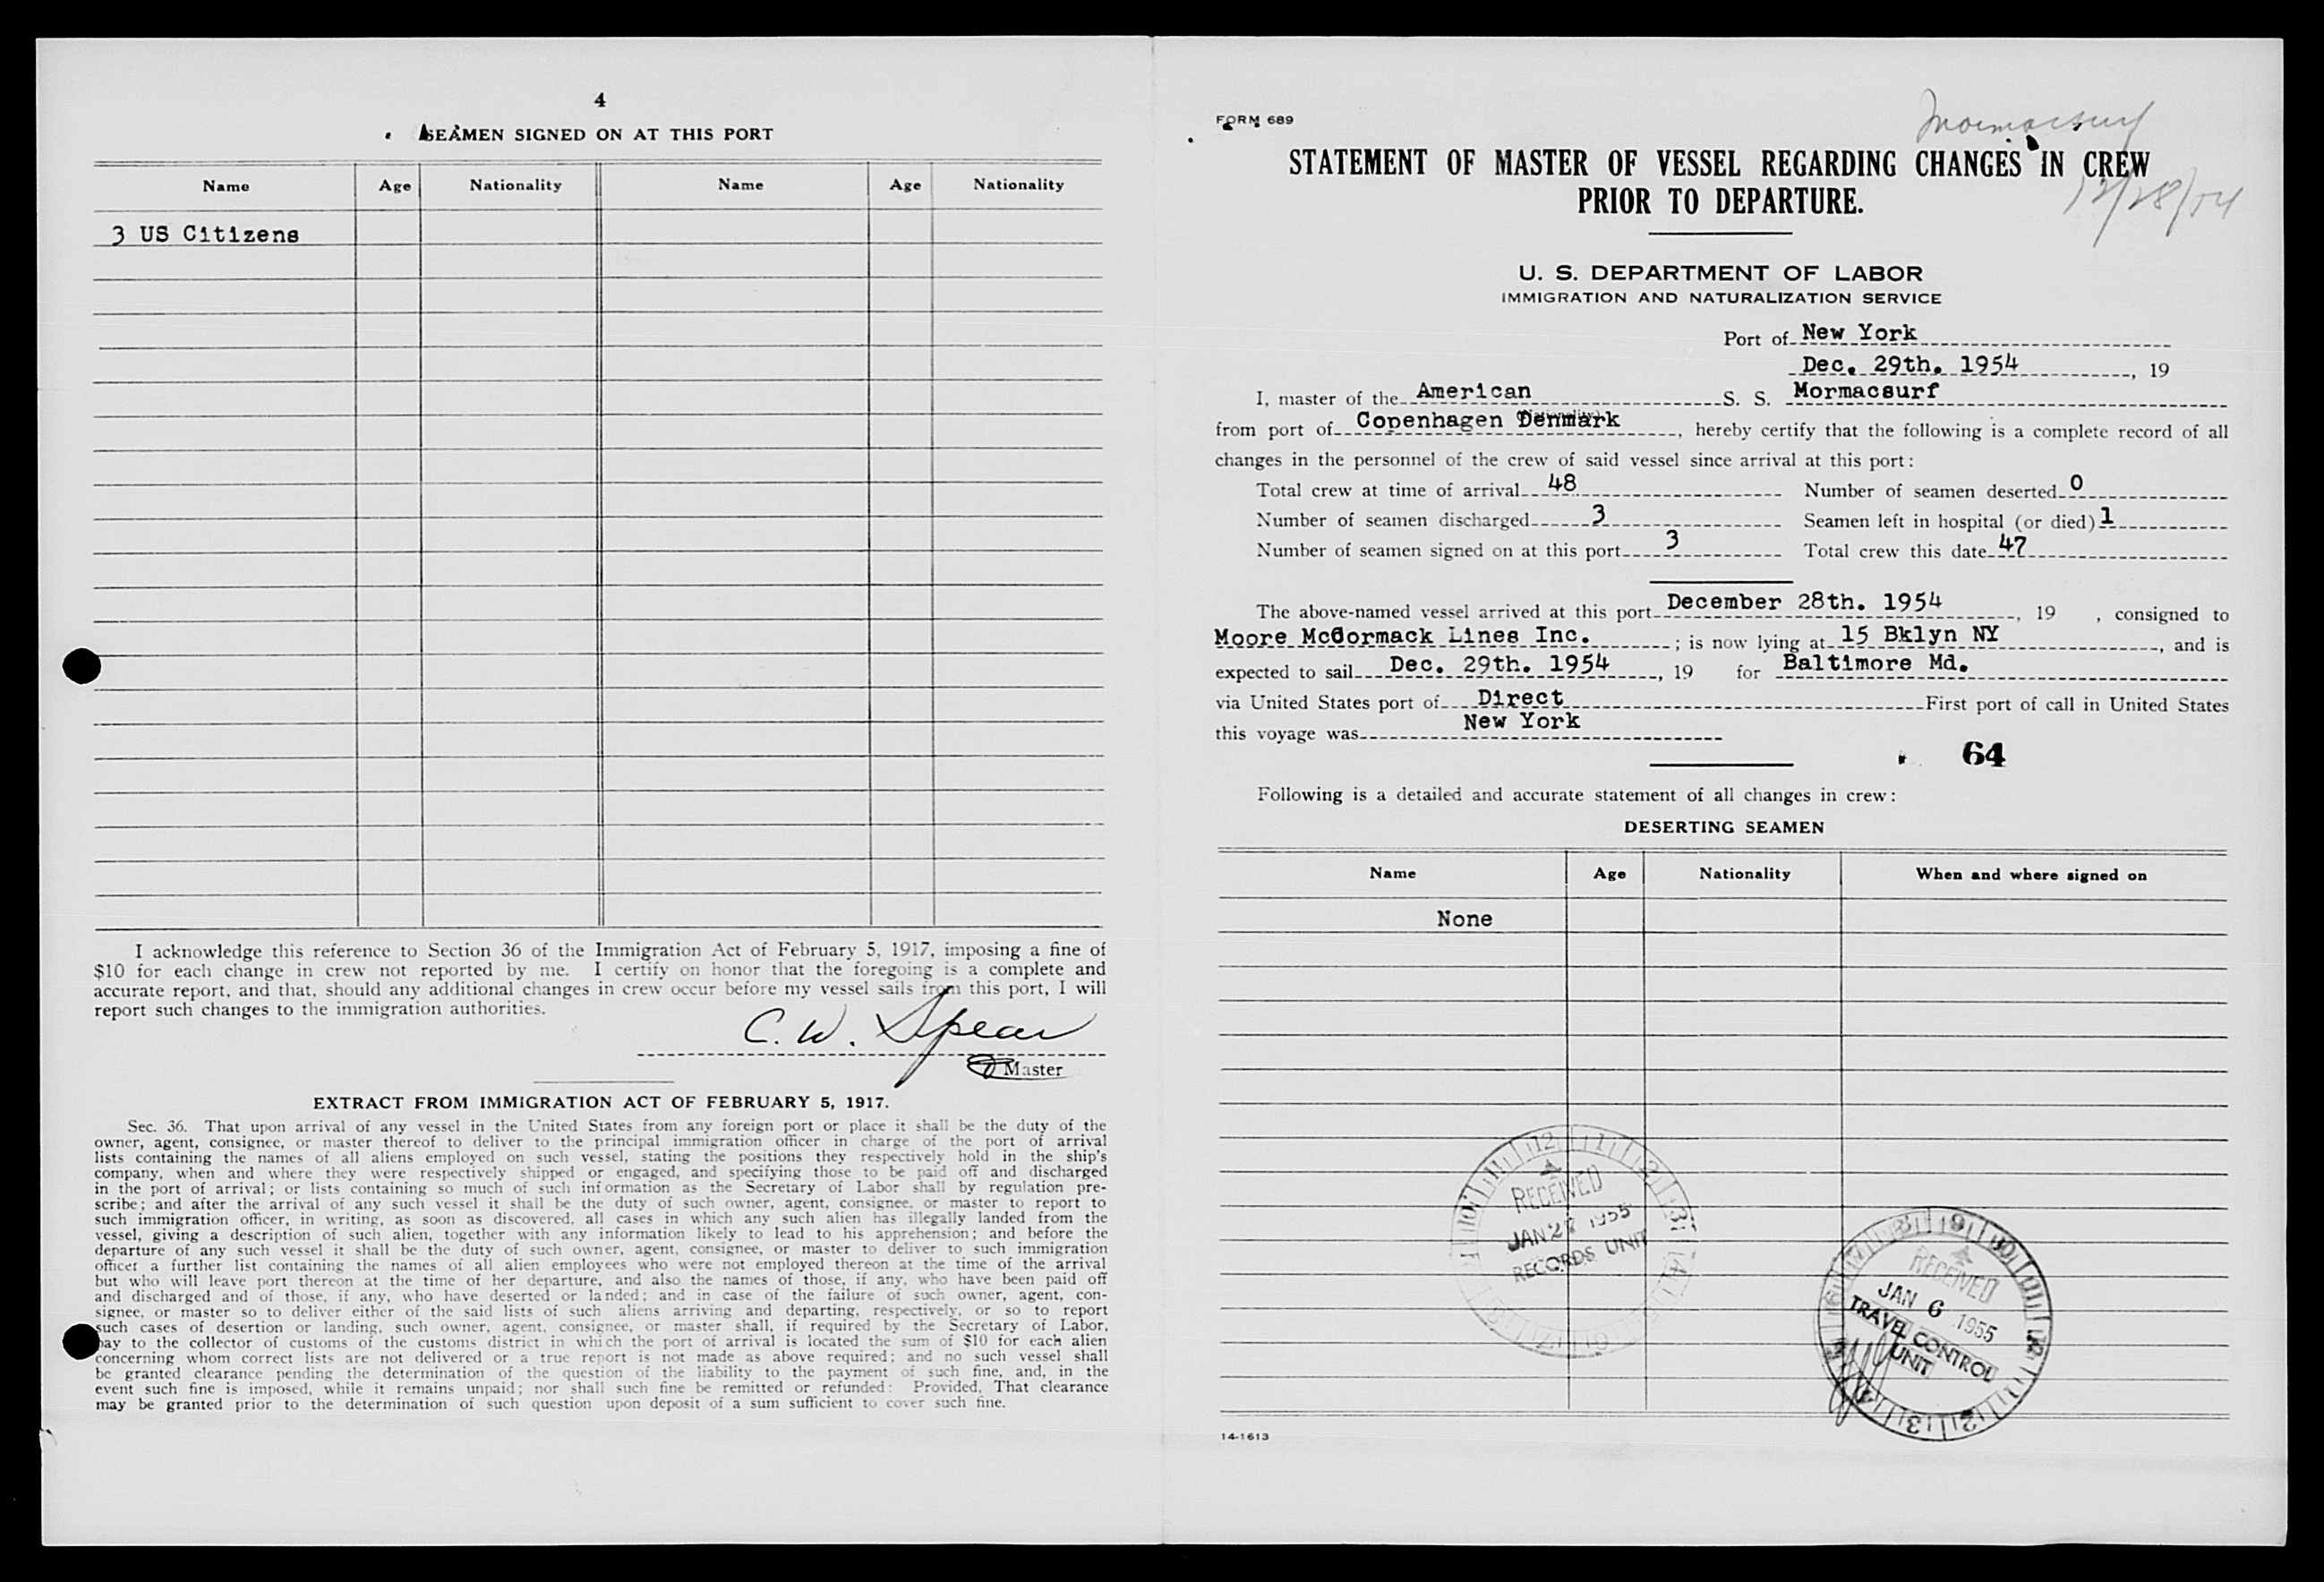 4
SEAMEN SIGNED ON AT THIS PORT
Name Age Nationality Name Age Nationality
3 US Citizens
I acknowledge this reference to Section 36 of the Immigration Act of February 5, 1917, imposing a fine of
$10 for each change in crew not reported by me. I certify on honor that the foregoing is a complete and
accurate report, and that, should any additional changes in crew occur before my vessel sails from this port, I will
report such changes to the immigration authorities.
C. W. Spear
Master
EXTRACT FROM IMMIGRATION ACT OF FEBRUARY 5, 1917.
Sec. 36. That upon arrival of any vessel in the United States from any foreign port or place it shall be the duty of the
owner, agent, consignee, or master thereof to deliver to the principal immigration officer in charge of the port of arrival
lists containing the names of all aliens employed on such vessel, stating the positions they respectively hold in the ship's
company, when and where they were respectively shipped or engaged, and specifying those to be paid off and discharged
in the port of arrival; or lists containing so much of such information as the Secretary of Labor shall by regulation pre-
scribe; and after the arrival of any such vessel it shall be the duty of such owner, agent, consignee, or master to report to
such immigration officer, in writing, as soon as discovered, all cases in which any such alien has illegally landed from the
vessel, giving a description of such alien, together with any information likely to lead to his apprehension; and before the
departure of any such vessel it shall be the duty of such owner, agent, consignee, or master to deliver to such immigration
officer a further list containing the names of all alien employees who were not employed thereon at the time of the arrival
but who will leave port thereon at the time of her departure, and also the names of those, if any, who have been paid off
and discharged and of those, if any, who have deserted or landed; and in case of the failure of such owner, agent, con-
signee, or master so to deliver either of the said lists of such aliens arriving and departing, respectively, or so to report
such cases of desertion or landing, such owner, agent, consignee, or master shall, if required by the Secretary of Labor,
pay to the collector of customs of the customs district in which the port of arrival is located the sum of $10 for each alien
concerning whom correct lists are not delivered or a true report is not made as above required; and no such vessel shall
be granted clearance pending the determination of the question of the liability to the payment of such fine, and, in the
event such fine is imposed, while it remains unpaid; nor shall such fine be remitted or refunded: Provided, That clearance
may be granted prior to the determination of such question upon deposit of a sum sufficient to cover such fine.
FORM 689
Mormacsurf
12/28/54
STATEMENT OF MASTER OF VESSEL REGARDING CHANGES IN CREW
PRIOR TO DEPARTURE.
U. S. DEPARTMENT OF LABOR
IMMIGRATION AND NATURALIZATION SERVICE
Port of New York
Dec. 29th. 1954, 19
I, master of the American S. S. Mormacsurf
(Nationality)
from port of Copenhagen Denmark, hereby certify that the following is a complete record of all
changes in the personnel of the crew of said vessel since arrival at this port:
Total crew at time of arrival 48 Number of seamen deserted 0
Number of seamen discharged 3 Seamen left in hospital (or died) 1
Number of seamen signed on at this port 3 Total crew this date 47
The above-named vessel arrived at this port December 28th. 1954, 19 , consigned to
Moore McCormack Lines Inc. ; is now lying at 15 Bklyn NY, and is
expected to sail Dec. 29th. 1954, 19 for Baltimore Md.
via United States port of Direct First port of call in United States
this voyage was New York
64
Following is a detailed and accurate statement of all changes in crew:
DESERTING SEAMEN
Name Age Nationality When and where signed on
None
RECEIVED
JAN 27 1955
RECORDS UNIT
RECEIVED
JAN 6 1955
TRAVEL CONTROL
UNIT
14-1613